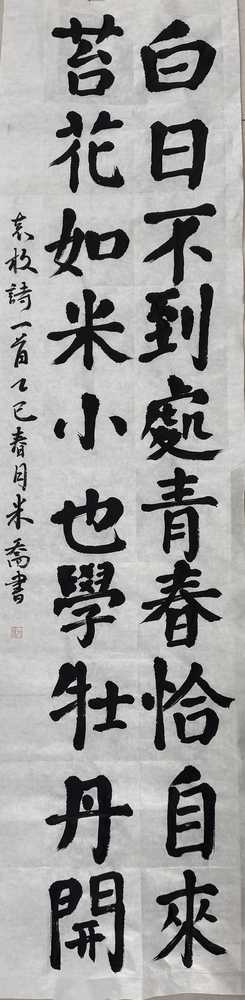 白日不到處青春恰自來
苔花如米小也學牡丹開
袁枚詩一首乙巳春月米喬書